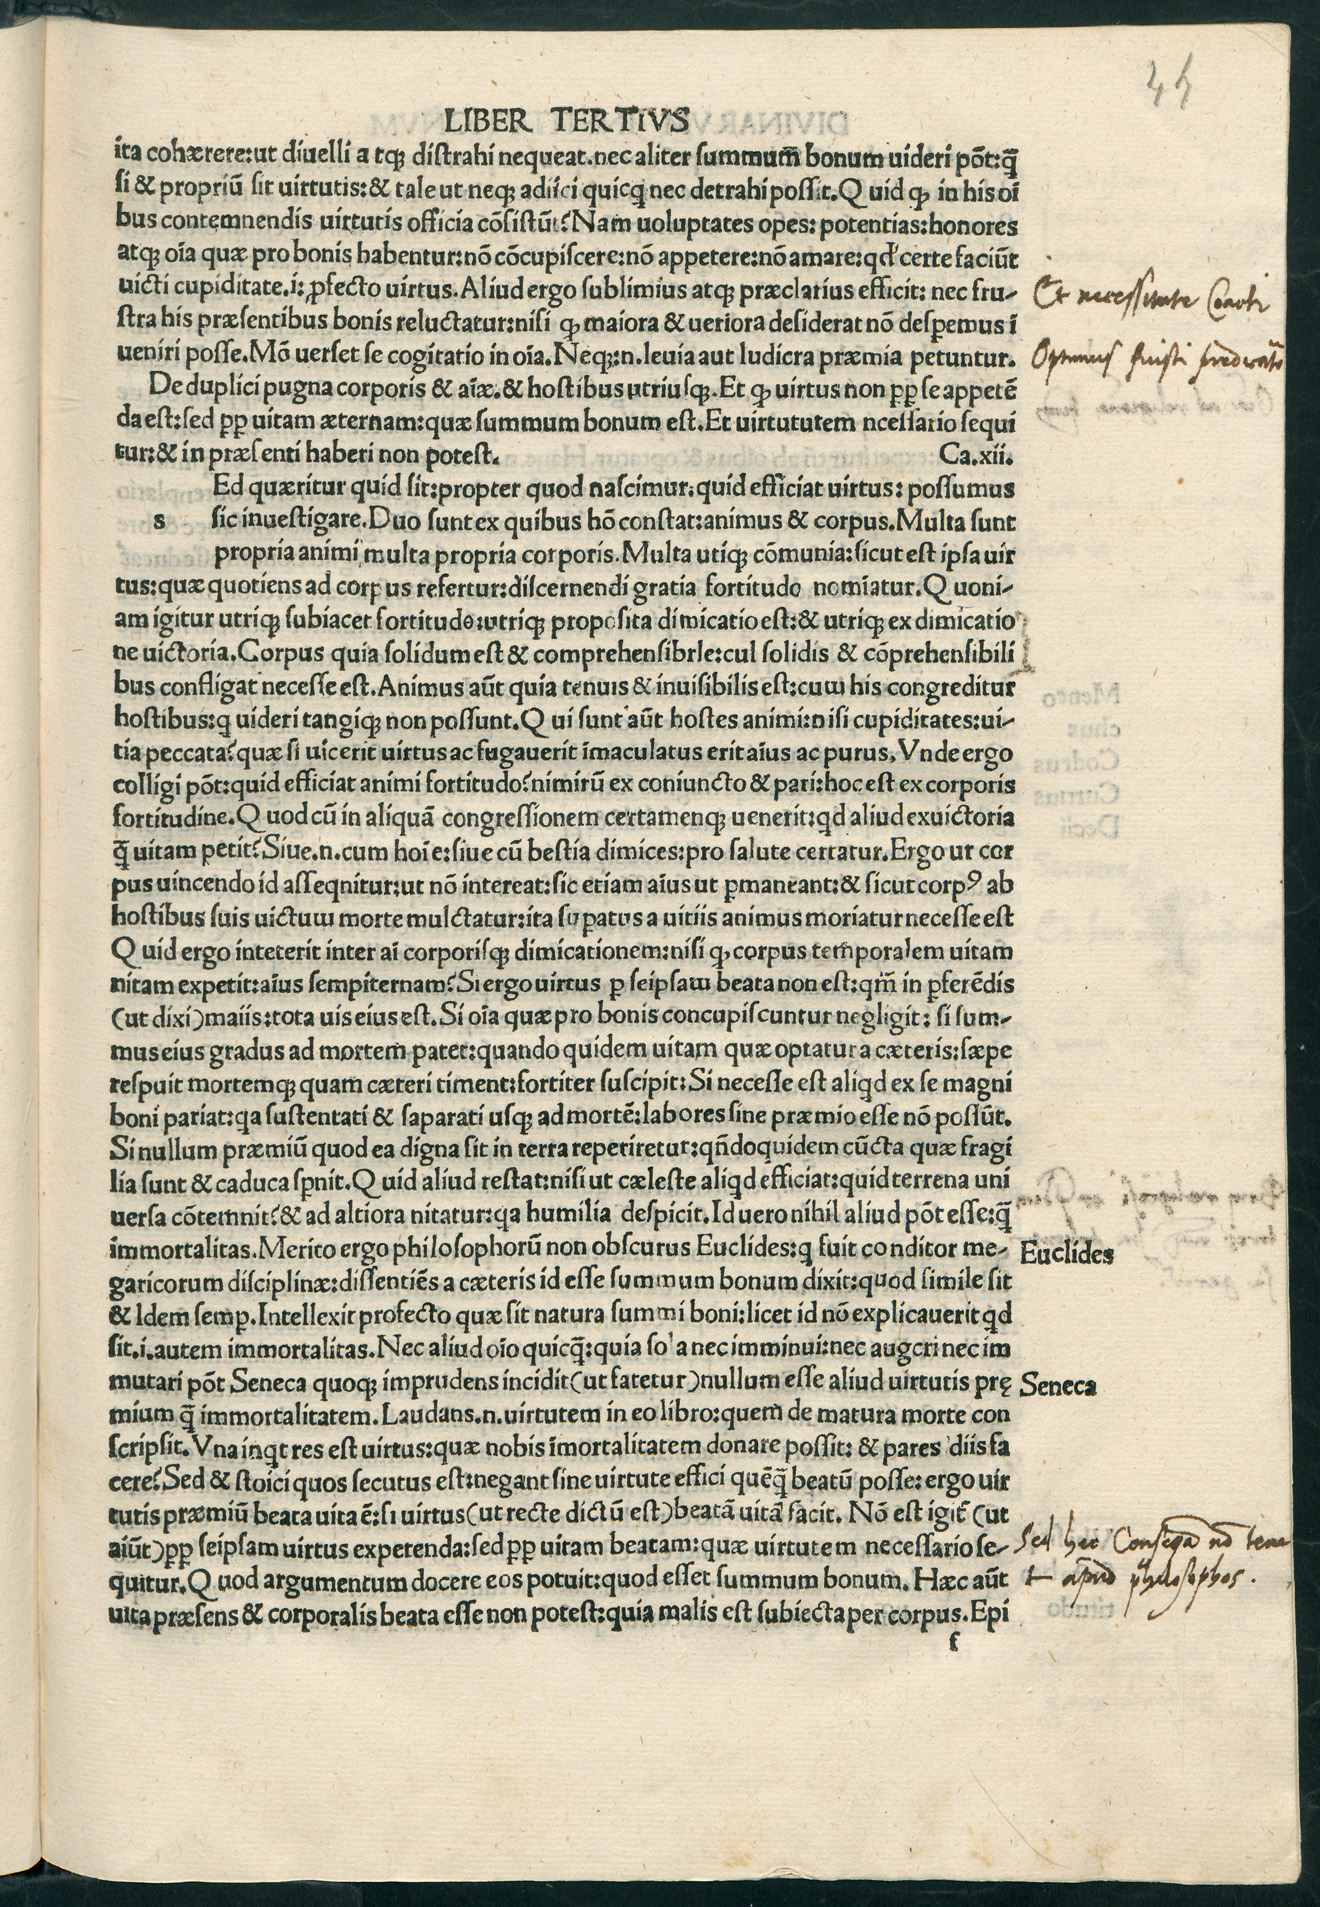 LIBER TERTIVS
ita cohærere:ut diuelli a tqꝫ distrahi nequeat.nec aliter summum̃ bonum uideri põt:q̃
si & propriũ sit uirtutis:& tale ut neqꝫ adiici quicq̃ nec detrahi possit.Q uid ꝙ in his oĩ
bus contemnendis uirtutis officia cõsistũt?Nam uoluptates opes: potentias:honores
atqꝫ oĩa quæ pro bonis habentur:nõ cõcupiscere:nõ appetere:nõ amare:qd' certe faciũt
uicti cupiditate.i: ꝓfecto uirtus.Aliud ergo sublimius atqꝫ præclarius efficit: nec fru-
stra his præsentibus bonis reluctatur:nisi ꝙ maiora & ueriora desiderat nõ desꝑemus ĩ
ueniri posse.Mõ uerset se cogitatio in oĩa.Neqꝫ:n.leuia aut ludicra præmia petuntur.
De duplici pugna corporis & aĩæ.& hostibus utriusqꝫ.Et ꝙ uirtus non ꝓꝑ se appetẽ
da est:sed ꝓꝑ uitam æternam:quæ summum bonum est.Et uirtututem ncessario sequi
tur:& in præsenti haberi non potest. Ca.xii.
Ed quæritur quid sit:propter quod nascimur:quid efficiat uirtus: possumus
s sic inuestigare.Duo sunt ex quibus hõ constat:animus & corpus.Multa sunt
propria animi multa propria corporis.Multa utiqꝫ cõmunia:sicut est ipsa uir
tus:quæ quotiens ad corpus refertur:discernendi gratia fortitudo nomĩatur.Q uoni-
am igitur utriqꝫ subiacet fortitudo:utriqꝫ proposita dimicatio est:& utriqꝫ ex dimicatio
ne uictoria.Corpus quia solidum est & comprehensibrle:cul solidis & cõprehensibili
bus confligat necesse est.Animus aũt quia tenuis & inuisibilis est:cum his congreditur
hostibus:q uideri tangiqꝫ non possunt.Q ui sunt aũt hostes animi:nisi cupiditates:ui-
tia peccata?quæ si uicerit uirtus ac fugauerit ĩmaculatus erit aĩus ac purus.Vnde ergo
colligi põt:quid efficiat animi fortitudo?nimirũ ex coniuncto & pari:hoc est ex corporis
fortitudine.Q uod cũ in aliquã congressionem certamenqꝫ uenerit:qd aliud exuictoria
q̃ uitam petit?Siue.n.cum hoĩe:siue cũ bestia dimices:pro salute certatur.Ergo ut cor
pus uincendo id asseqnitur:ut nõ intereat:sic etiam aĩus ut ꝑmaneant:& sicut corpꝰ ab
hostibus suis uictum morte mulctatur:ita suꝑatus a uitiis animus moriatur necesse est
Q uid ergo inteterit inter aĩ corporisqꝫ dimicationem:nisi ꝙ corpus tem̃poralem uitam
nitam expetit:aĩus sempiternam?Si ergo uirtus ꝑ seipsam beata non est:qm̃ in ꝑferẽdis
(ut dixi)maiis:tota uis eius est.Si oĩa quæ pro bonis concupiscuntur negligit: si sum-
mus eius gradus ad mortem̃ patet:quando quidem uitam quæ optatur a cæteris:sæpe
respuit mortemqꝫ quam cæteri timent:fortiter suscipit:Si necesse est aliqd ex se magni
boni pariat:qa sustentati & saparati usqꝫ ad mortẽ:labores sine præmio esse nõ possũt.
Si nullum præmiũ quod ea digna sit in terra reperiretur:qñdoquidem cũcta quæ fragi
lia sunt & caduca sꝑnit.Q uid aliud restat:nisi ut cæleste aliqd efficiat:quid terrena uni
uersa cõtemnit?& ad altiora nitatur:qa humilia despicit.Id uero nihil aliud põt esse:q̃
immortalitas.Merito ergo philosophorũ non obscurus Euclides:q fuit conditor me-
Euclides
garicorum disciplinæ:dissentiẽs a cæteris id esse summum bonum dixit:quod simile sit
& Idem semꝑ.Intellexit profecto quæ sit natura summi boni:licet id nõ explicauerit qd
sit.i.autem immortalitas.Nec aliud oĩo quicq̃:quia so a nec imminui:nec augeri nec im
mutari põt Seneca quoqꝫ imprudens incidit(ut fatetur)nullum esse aliud uirtutis prę
Seneca
mium q̃ immortalitatem.Laudans.n.uirtutem in eo libro:quem̃ de matura morte con
scripsit.Vna inqt res est uirtus:quæ nobis ĩmortalitatem donare possit: & pares diis fa
cere?Sed & stoici quos secutus est:negant sine uirtute effici quẽq̃ beatũ posse:ergo uir
tutis præmiũ beata uita ẽ:si uirtus(ut recte dictũ est)beatã uitã facit. Nõ est igit̃ (ut
aiũt)ꝓꝑ seipsam uirtus expetenda:sed ꝓꝑ uitam beatam:quæ uirtutem necessario se-
quitur.Q uod argumentum docere eos potuit:quod esset summum bonum. Hæc aũt
uita præsens & corporalis beata esse non potest:quia malis est subiecta per corpus.Epi
f
Et necessitate Coacti
Sed hec
apud philosophos.